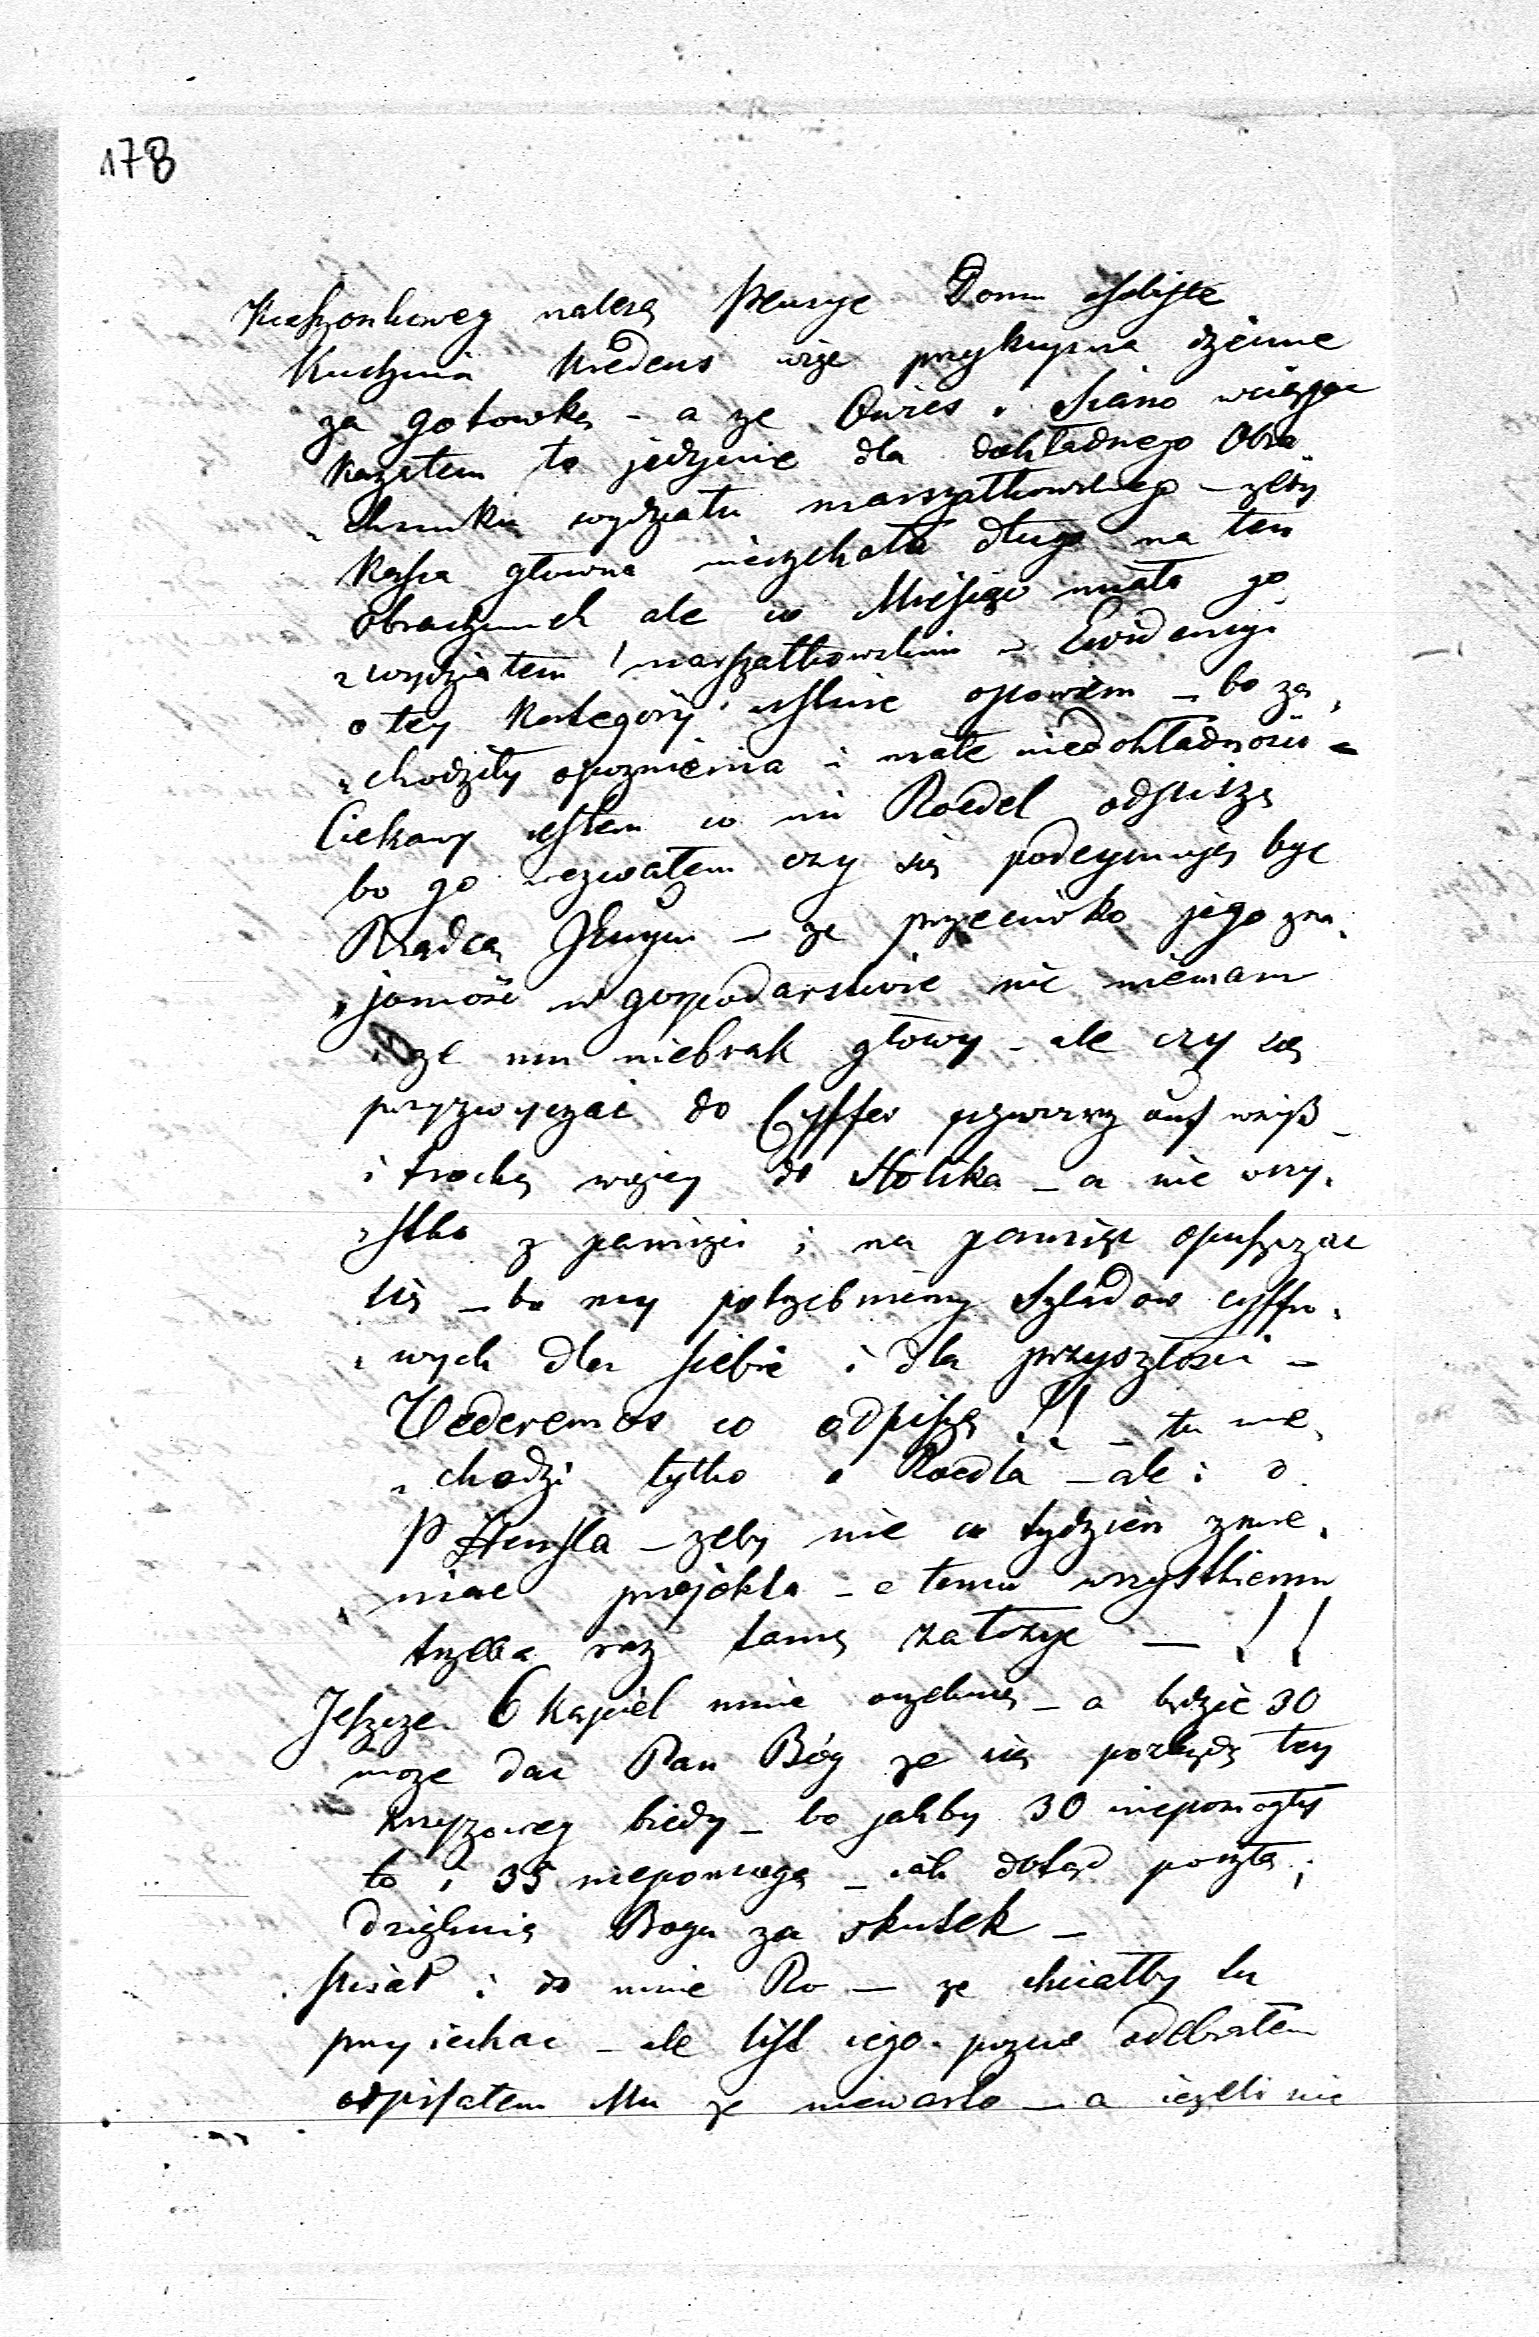 178
Kieszonkowey należą Pensye Domu osobiste
Kuchnia Kredens wize przykupna dzienne
za gotowką - a ze Owies i Siano wciągac
kazałem to jedynie dla dokładnego Obra„
„chunku wydziału marszałkowskiego - zeby
Kassa głowna nieczekała długo na ten
obrachunek ale co Miesiąc miała go
z wydziałem marszałkowskim w Ewidencyi
o tey Kategoryi ustnie opowiem - bo za„
„chodziły opoznienia i małe niedokładności -
Ciekawy jestem co mi Roedel odpisze
bo go wezwałem czy się podeymuje byc
Rządcą - ze przeciwko jego zna„
„jomości w gospodarstwie nic niemam
i ze mu niebrak głowy - ale czy się
przyzwyczai do Cyffer schwarz auf weiß -
i trochę więcey do Stolika - a nie wszy„
„stko z pamięci i na pamięc opuszczac
się - bo my potrzebniemy Szladow cyffro„
„wych dla siebie i dla przyszłosci -
Vederemos co odpisze !! - tu nie„
„chodzi tylko o Roedla - ale i o
P Hensla - zeby nie co tydzien zmie„
„niac projekta - a temu wszystkiemu
trzeba raz tamę załozyc - !!
Jeszcze 6 kąpiel mnie oczekuie - a będzie 30
moze dac Pan Bóg ze się pozbędę tey
krzyzowey biedy - bo jakby 30 niepomogły
to i 35 niepomogą - jak dotąd poszło ;
dziękuię Bogu za skutek -
pisał i do mnie Ro - ze chciałby tu
przyiechac - ale list iego pozno odebrałem
odpisałem Mu ze niewarto - a iezeli nie